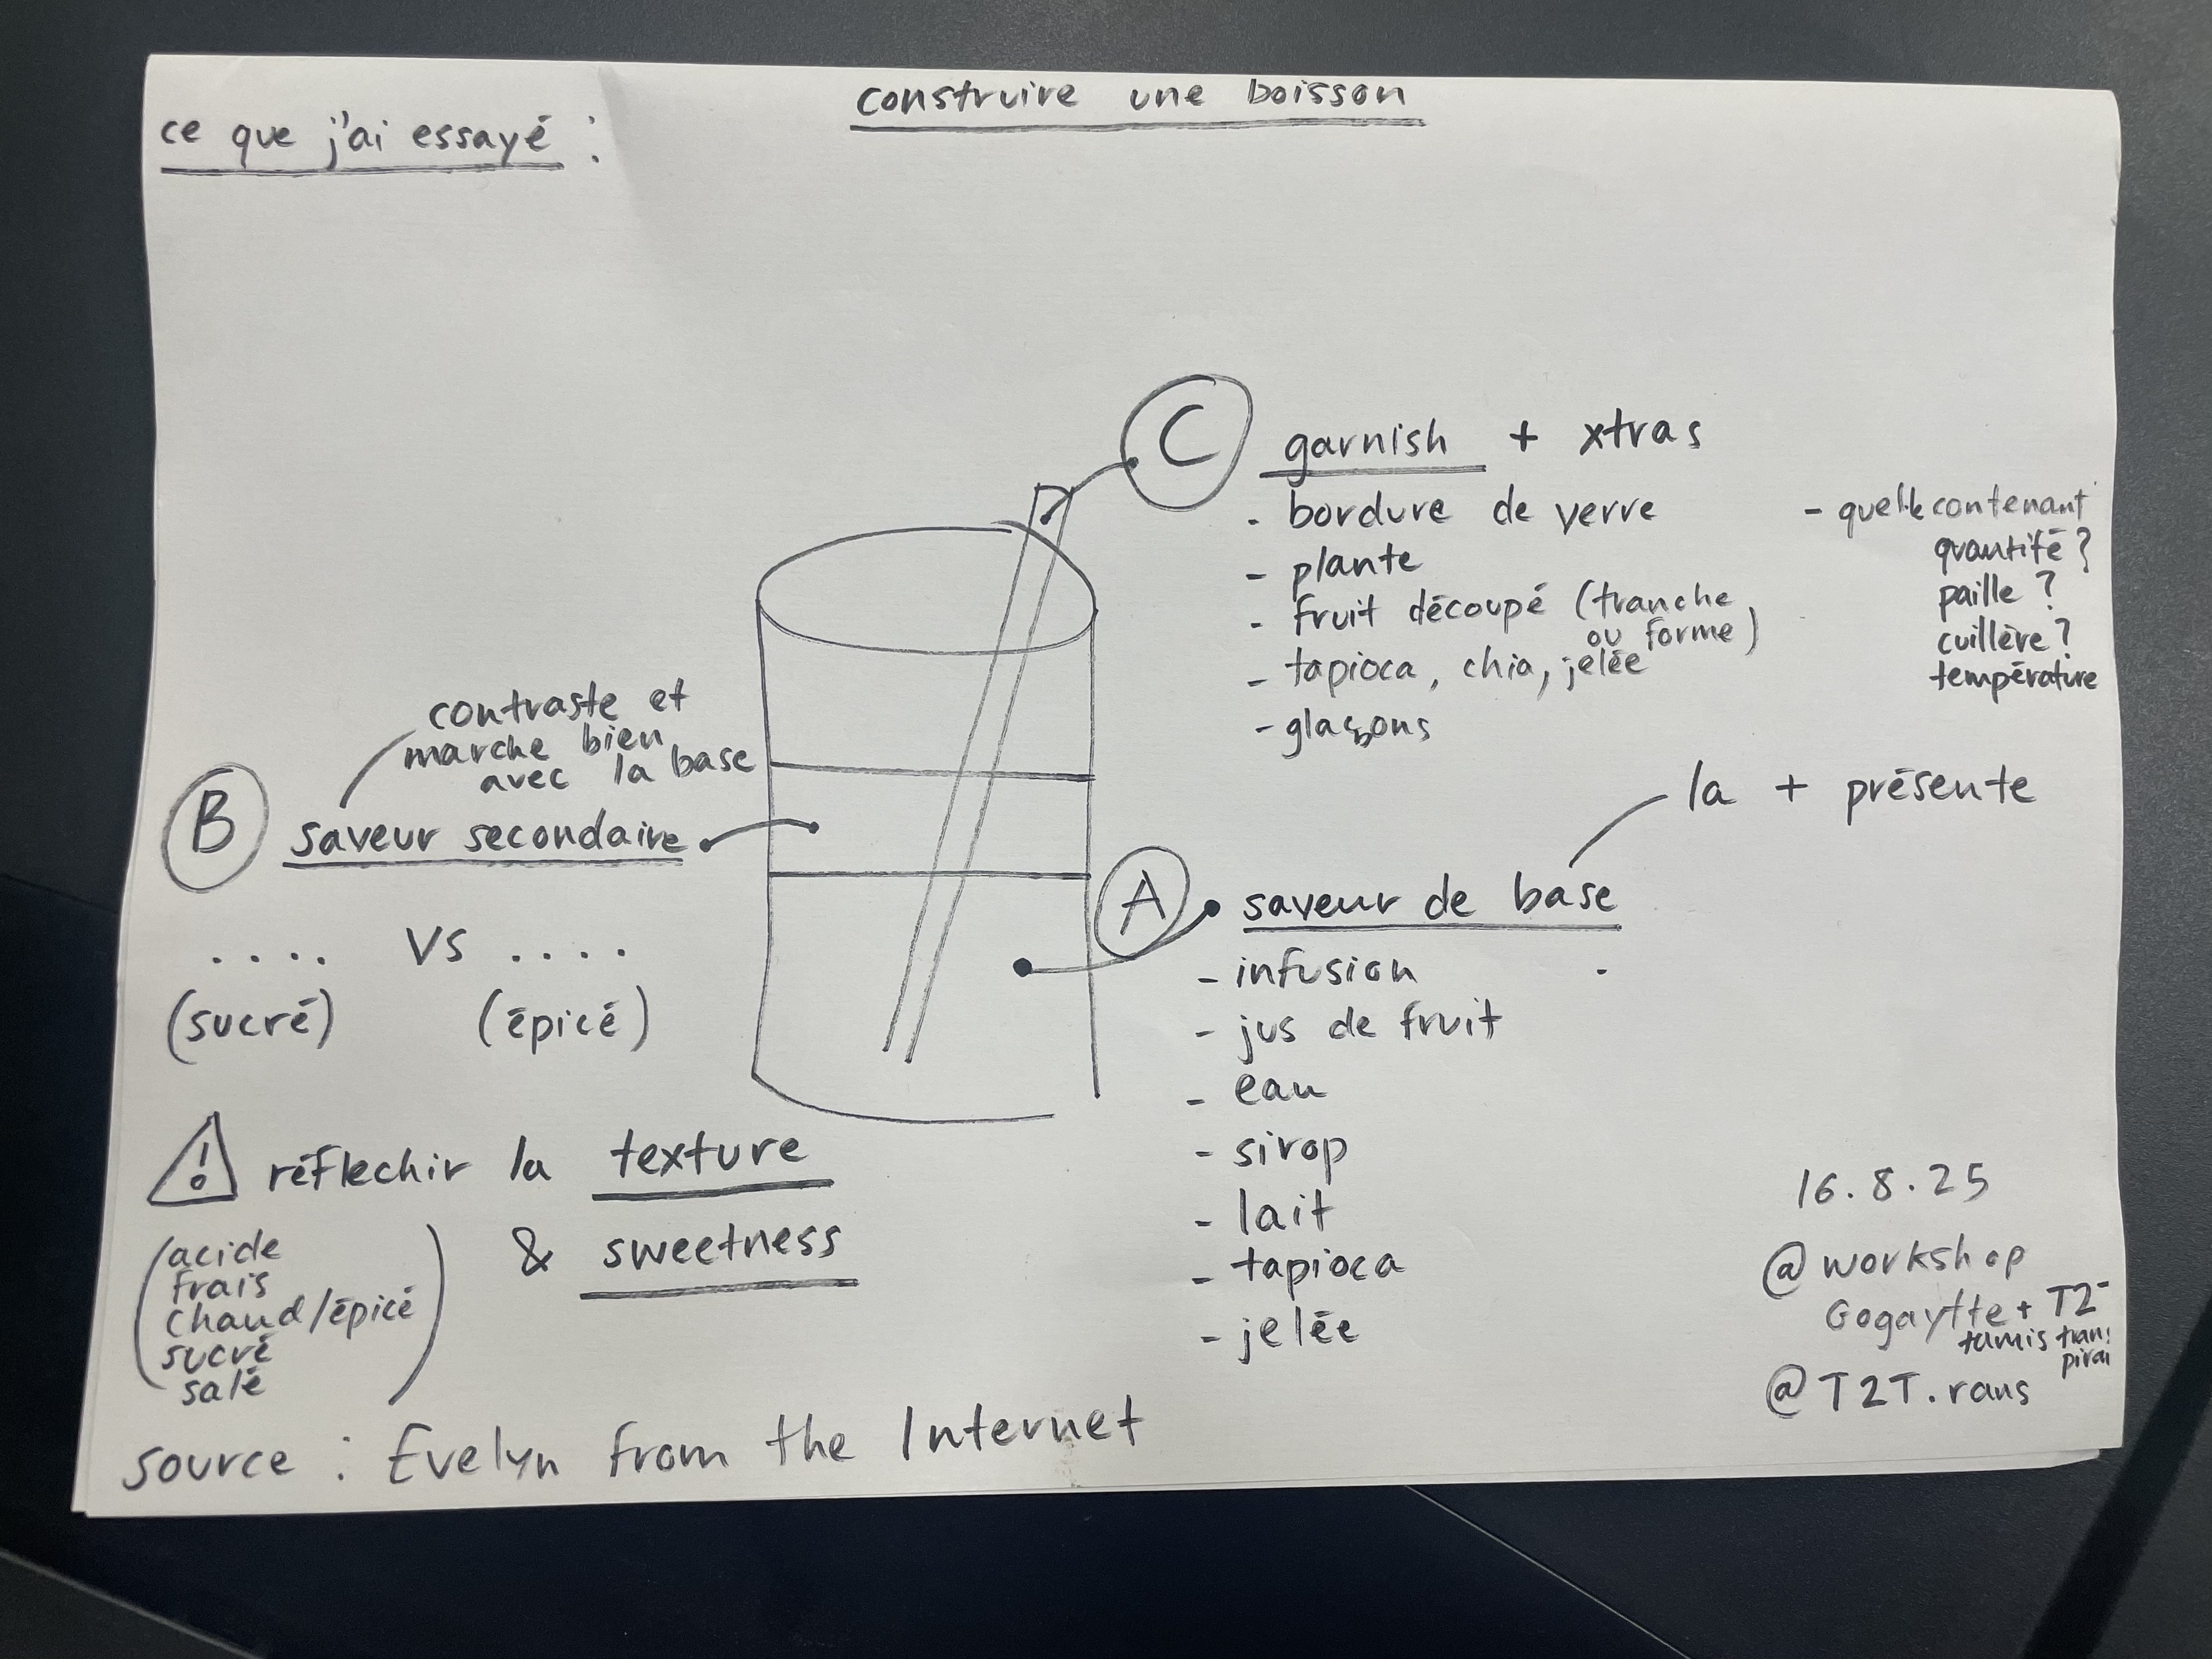 construire une boisson
ce que j'ai essayé :
C garnish + xtras
- bordure de verre
- plante
- fruit découpé (tranche
ou forme)
- tapioca, chia, jelée
- glaçons
- quelle contenant
quantité ?
paille ?
cuillère ?
température
contraste et
marche bien
avec la base
B saveur secondaire
.... VS ....
(sucré) (épicé)
la + présente
A saveur de base
- infusion
- jus de fruit
- eau
- sirop
- lait
- tapioca
- jelée
! réflechir la texture
& sweetness
(acide
frais
chaud/épicé
sucré
salé)
16.8.25
@workshop
Gogaytte + T2-
tamis
@T2T.rans
source : Evelyn from the Internet